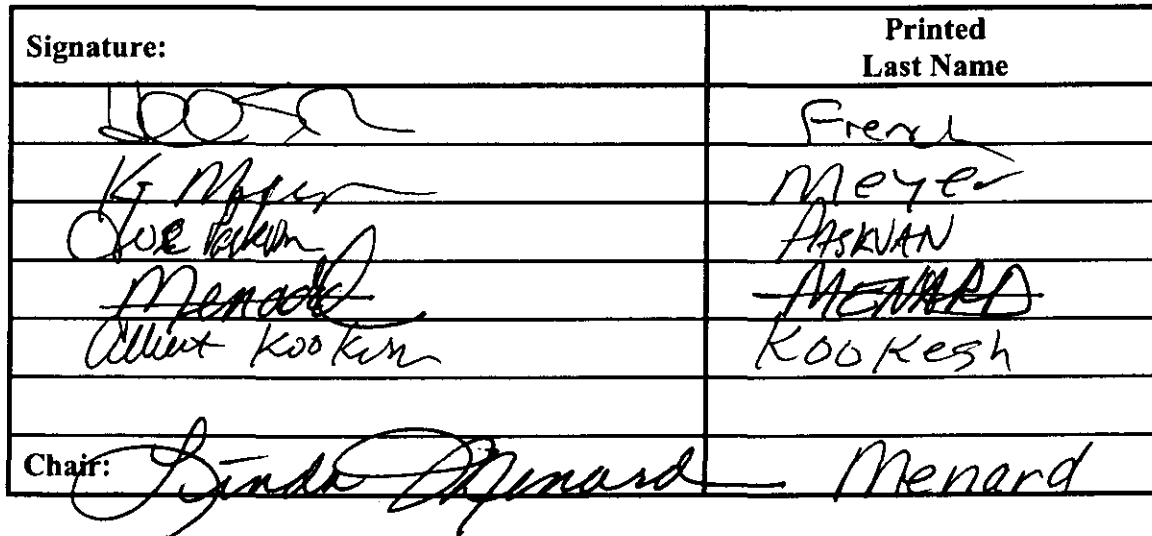 Signature: Printed
Last Name
French
Meyer Meyer
Joe Paskvan PASKVAN
Menard MENARD
Albert Kookesh Kookesh
Chair: Linda Menard Menard